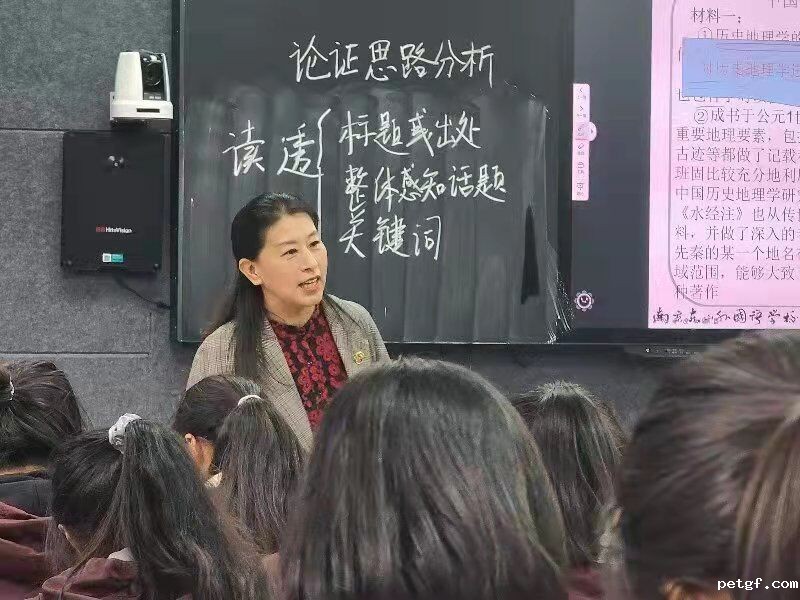 论证思路分析
读透
标题或出处
整体感知话题
关键词
HiteVision
材料一：
①历史地理学的
对历史地理学进
②成书于公元1世
重要地理要素，包
古迹等都做了记载
班固比较充分地利用
中国历史地理学研究
《水经注》也从传
料，并做了深入的考
先秦的某一个地名
域范围，能够大致
种著作
外国语学校
petgf.com